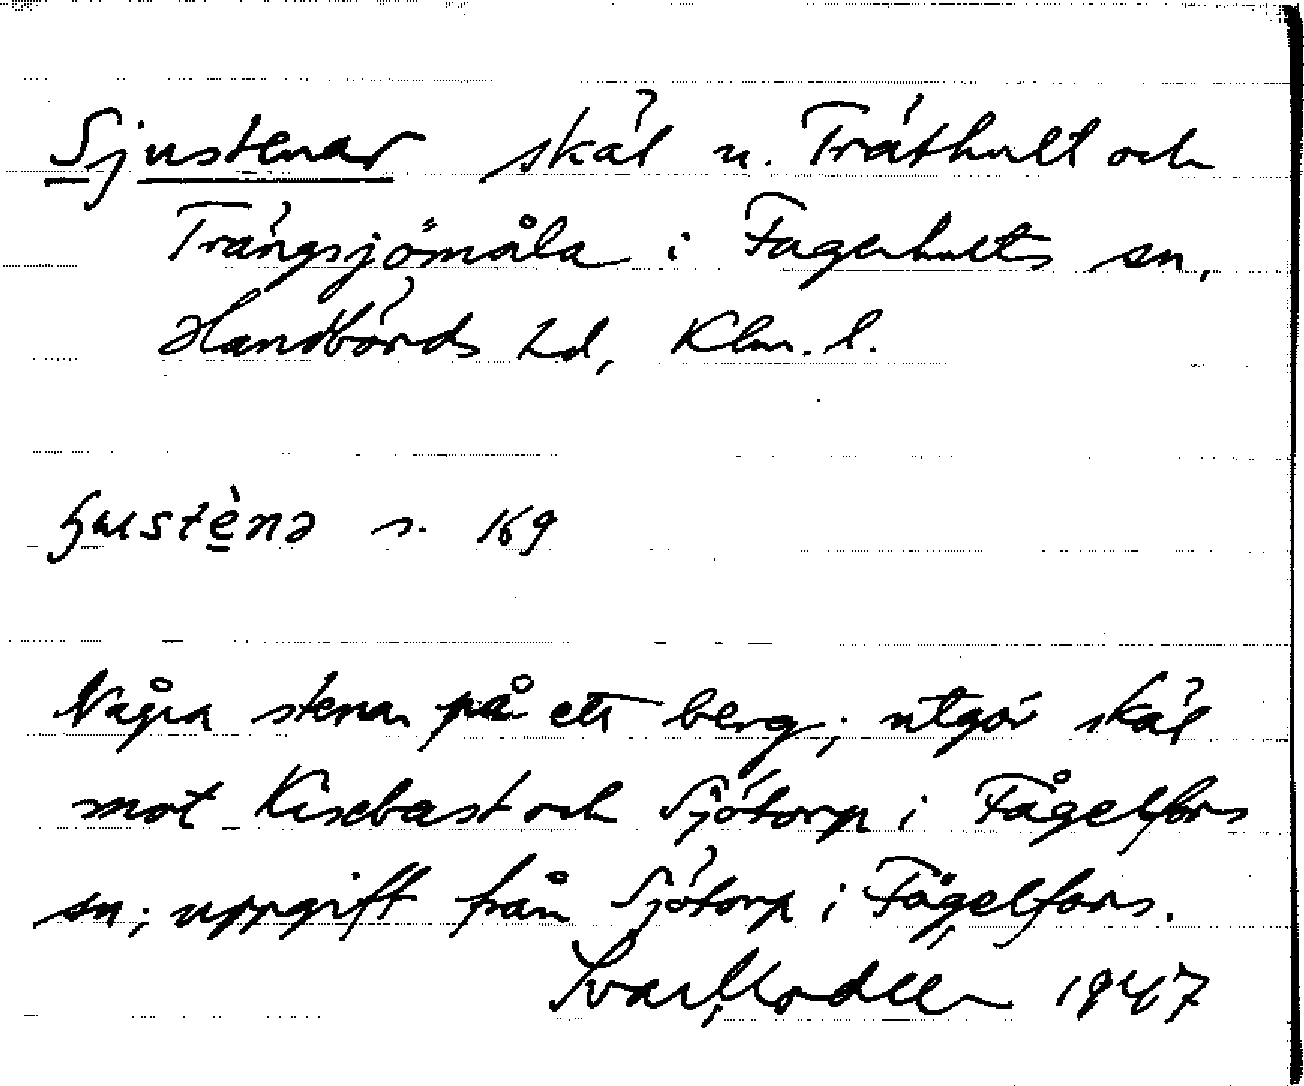 Sjustenar skäl n. Tråthult och
Trångsjömåla i Fagerhults sn,
Handbörds hd, Klm. l.
s. 169
Några stenar på ett berg; utgör skäl
mot Kisebast och Sjötorp i Fågelfors
sn; uppgift från Sjötorp i Fågelfors.
Ivar Modéer 1947